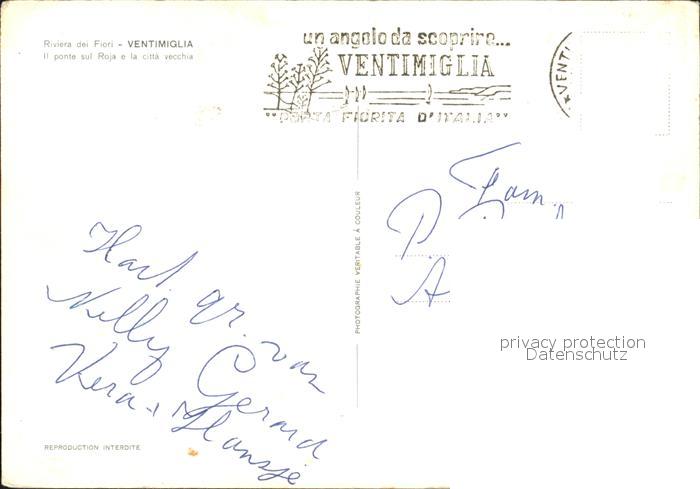 Riviera dei Fiori - VENTIMIGLIA
Il ponte sul Roja e la città vecchia
un angolo da scoprire...
VENTIMIGLIA
"PORTA FIORITA D'ITALIA"
VENTI
PHOTOGRAPHIE VERITABLE À COULEUR
Fam.
P.
A
Hart. gr. van
Nelly Gerard
Vera + Hansje
privacy protection
Datenschutz
REPRODUCTION INTERDITE